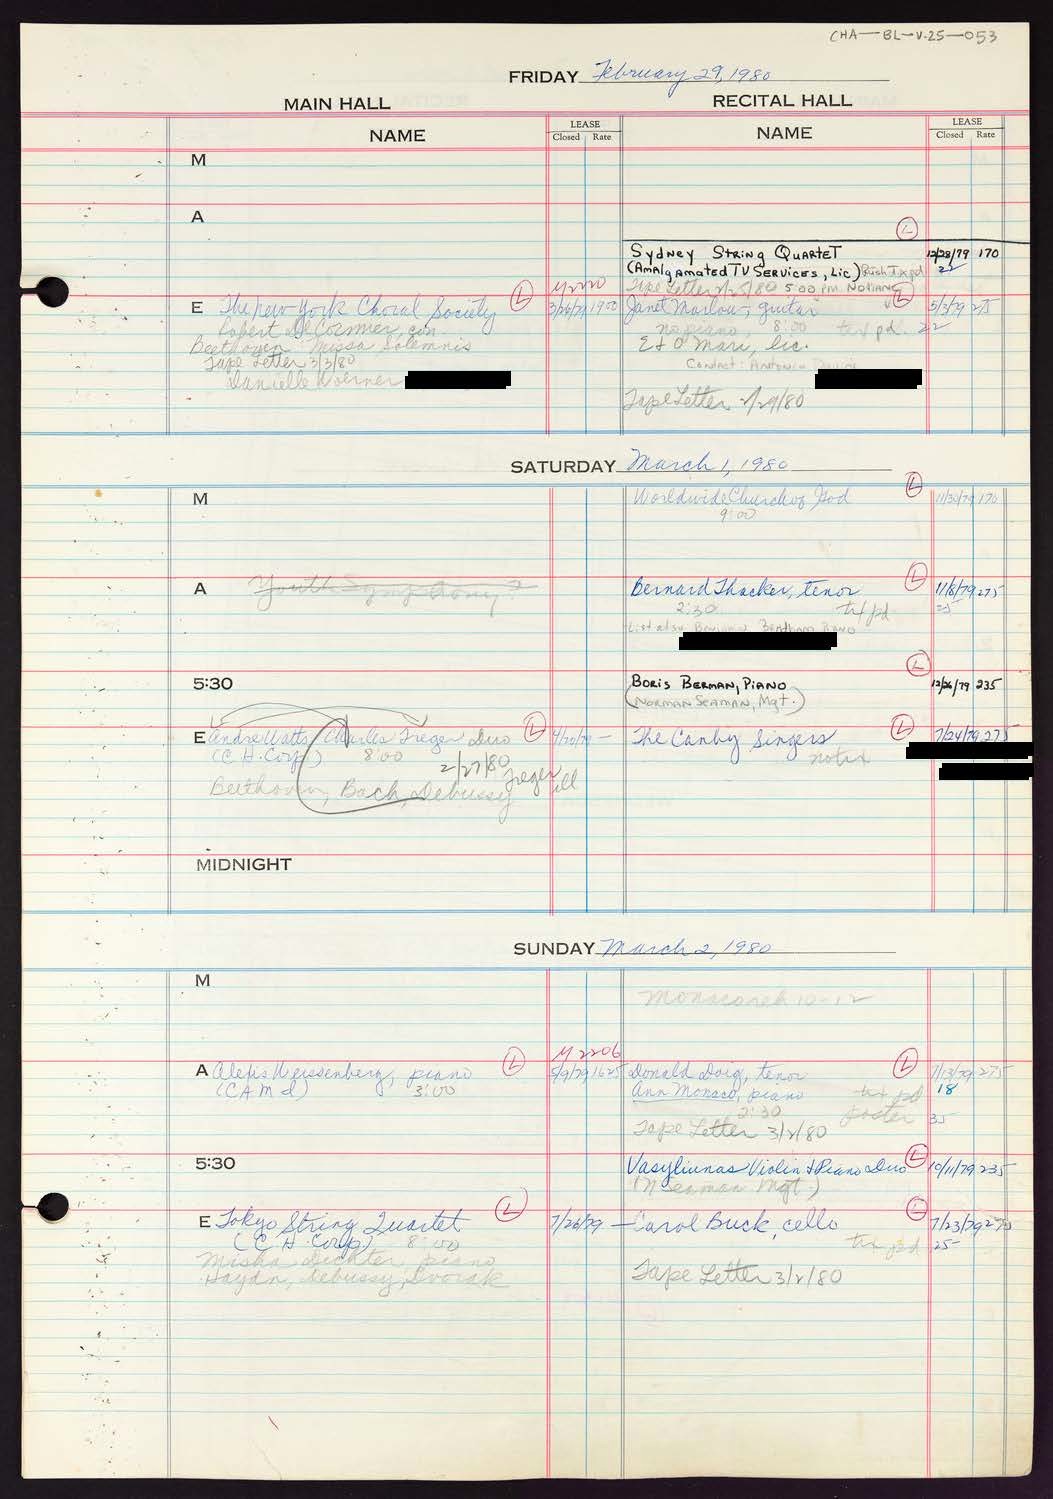 CHA-BL-V.25-053
FRIDAY February 29, 1980
MAIN HALL
RECITAL HALL
NAME
LEASE
Closed Rate
NAME
LEASE
Closed Rate
M
A
L
Sydney String Quartet 12/28/79 170
(Amalgamated TV Services, Lic) Rush Tx pd 22
Tape Letter 2/25/80 5:00 PM No Piano
M 2220
E The New York Choral Society L 3/26/79 1900
Robert DeCormier, con.
Beethoven Missa Solemnis
Tape Letter 3/3/80
Danielle Woerner
Janet Marlow, guitar L 5/3/79 275
no piano, 8:00 txt pd. 22
E & O Mari, lic.
Contact: Antonio
Tape Letter 2/29/80
SATURDAY March 1, 1980
M
Worldwide Church of God L 11/30/79 170
9:00
A Youth Symphony?
Bernard Thacker, tenor L 11/8/79 275
2:30 txt pd 25
List also Benjamin
5:30
L
Boris Berman, Piano 12/26/79 235
(Norman Seaman, Mgt.)
E Andre Watts, Charles Treger Duo L 4/30/79 —
(C.H. Corp) 8:00
2/27/80 Treger ill
Beethoven, Bach, Debussy
The Canby Singers L 7/24/79 275
no txt
MIDNIGHT
SUNDAY March 2, 1980
M
10-12
M 2206
A Alexis Weissenberg, piano L 5/9/79 1625
(CAMI) 3:00
Donald Doig, tenor L 7/13/79 275
Ann Monaco, piano txt pd 18
2:30 poster 35
Tape Letter 3/2/80
5:30
Vasyliunas Violin & Piano Duo L 10/11/79 235
(N Seaman Mgt.)
E Tokyo String Quartet L 7/26/79 —
(C.H. Corp) 8:00
Misha Dichter, piano
Haydn, Debussy, Dvorak
Carol Buck, cello L 7/23/79 275
txt pd 25
Tape Letter 3/2/80